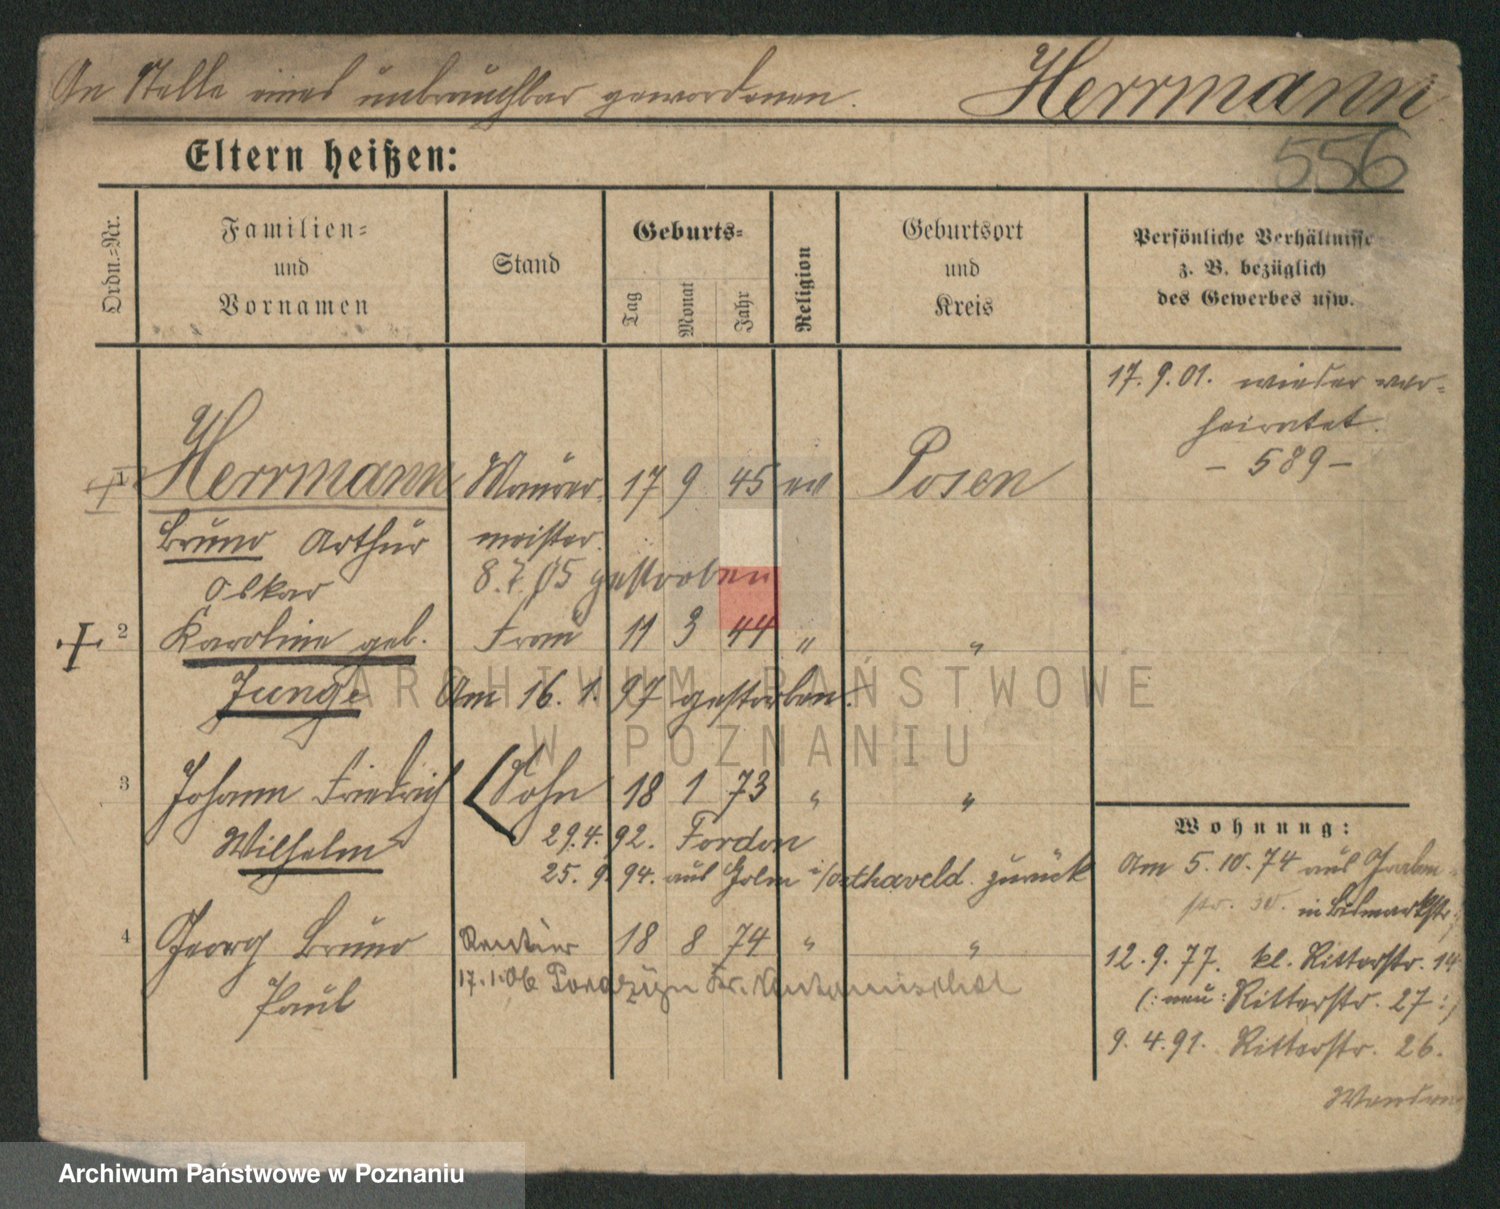 An Stelle eines unbrauchbar gewordenen. Herrmann
556
Eltern heißen:
Ordn.=Nr.
Familien=
und
Vornamen
Stand
Geburts=
Tag Monat Jahr
Religion
Geburtsort
und
Kreis
Persönliche Verhältnisse
z. B. bezüglich
des Gewerbes usw.
17. 9. 01. wieder ver=
heiratet.
– 589 –
1 Herrmann Maurer 17 9 45 ev Posen
Bruno Arthur meister.
Oskar 8. 7. 05 gestorben
2 Karoline geb. Frau 11 3 44 " "
Junge Am 16. 1. 97 gestorben.
3 Johann Friedrich Sohn 18 1 73 " "
Wilhelm 29. 4. 92. Fordon
25. 9. 94. aus Golm i/Osthaveld. zurück
4 Georg Bruno Rentier 18 8 74 " "
Paul 17. 1. 06
Wohnung:
Am 5. 10. 74 aus Graben
str. in Bismarkstr.
12. 9. 77. kl. Ritterstr. 14
(: neu: Ritterstr. 27 :)
9. 4. 91. Ritterstr. 26.
Wenden
ARCHIWUM PAŃSTWOWE
W POZNANIU
Archiwum Państwowe w Poznaniu